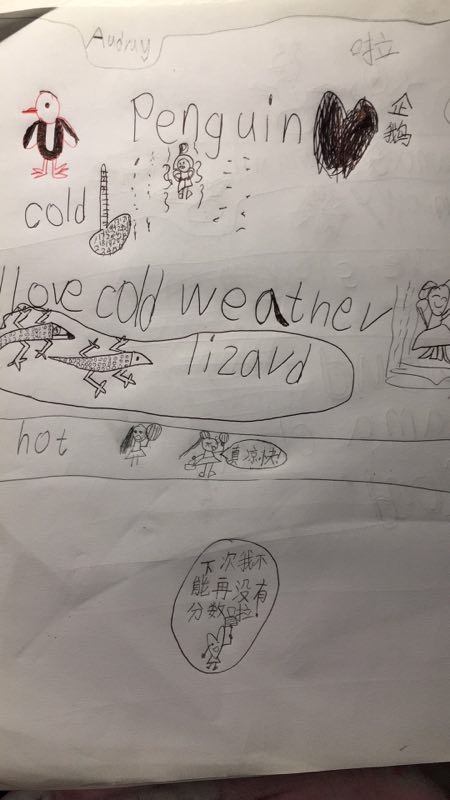 Audray
啦
Penguin
企鹅
cold
I love cold weather
lizard
hot
真凉快!
下次我不
能再没有
分数啦!